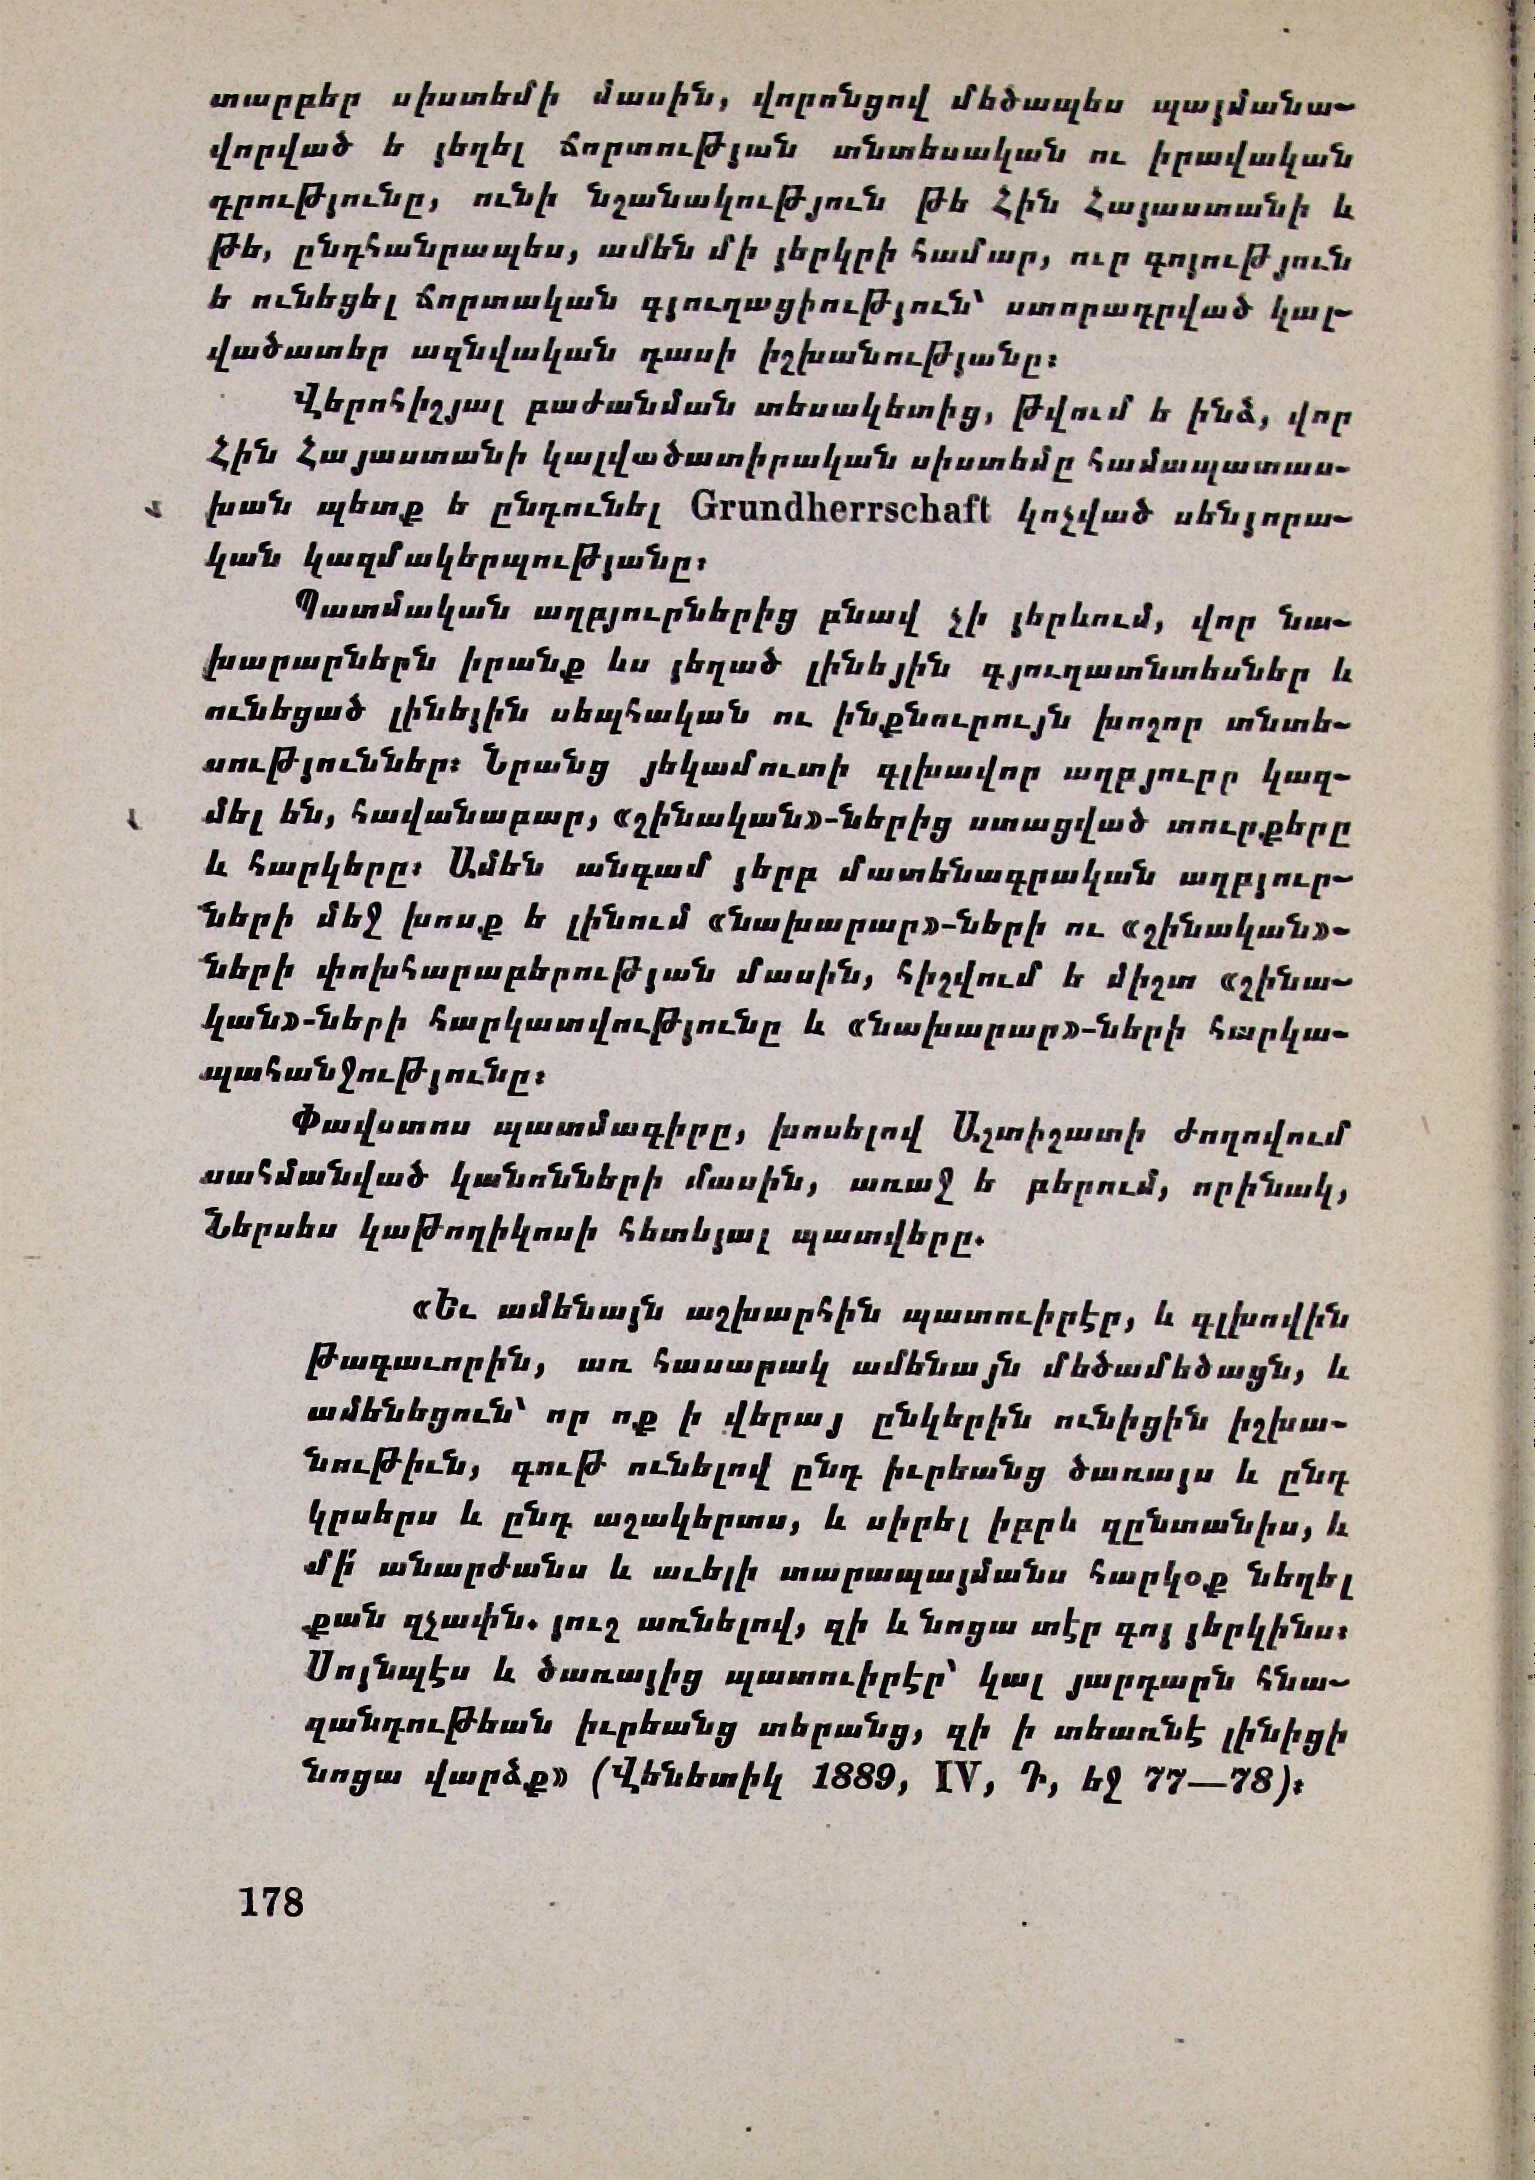 տարբեր սիստեմի մասին, վորոնցով մեծապես պայմանա-
վորված ե յեղել ճորտության տնտեսական ու իրավական
դրությունը, ունի նշանակություն թե Հին Հայաստանի և
թե, ընդհանրապես, ամեն մի յերկրի համար, ուր գոյություն
ե ունեցել ճորտական գյուղացիություն՝ ստորադրված կալ-
վածատեր ազնվական դասի իշխանությանը։
Վերոհիշյալ բաժանման տեսակետից, թվում ե ինձ, վոր
Հին Հայաստանի կալվածատիրական սիստեմը համապատաս-
խան պետք ե ընդունել Grundherrschaft կոչված սենյորա-
կան կազմակերպությանը։
Պատմական աղբյուրներից բնավ չի յերևում, վոր նա-
խարարներն իրանք ևս յեղած լինեյին գյուղատնտեսներ և
ունեցած լինեյին սեպհական ու ինքնուրույն խոշոր տնտե-
սություններ։ Նրանց յեկամուտի գլխավոր աղբյուրը կազ-
մել են, հավանաբար, «շինական»-ներից ստացված տուրքերը
և հարկերը։ Ամեն անգամ յերբ մատենագրական աղբյուր-
ների մեջ խոսք ե լինում «նախարար»-ների ու «շինական»-
ների փոխհարաբերության մասին, հիշվում ե միշտ «շինա-
կան»-ների հարկատվությունը և «նախարար»-ների հարկա-
պահանջությունը։
Փավստոս պատմագիրը, խոսելով Աշտիշատի ժողովում
սահմանված կանոնների մասին, առաջ ե բերում, որինակ,
Ներսես կաթողիկոսի հետևյալ պատվերը.
«Եւ ամենայն աշխարհին պատուիրէր, և գլխովին
թագաւորին, առ հասարակ ամենայն մեծամեծացն, և
ամենեցուն՝ որ ոք ի վերայ ընկերին ունիցին իշխա-
նութիւն, գութ ունելով ընդ իւրեանց ծառայս և ընդ
կրսերս և ընդ աշակերտս, և սիրել իբրև զընտանիս, և
մի՛ անարժանս և աւելի տարապայմանս հարկօք նեղել
քան զչափն. յուշ առնելով, զի և նոցա տէր գոյ յերկինս։
Սոյնպէս և ծառայից պատուիրէր՝ կալ յարդարն հնա-
զանդութեան իւրեանց տերանց, զի ի տեառնէ լինիցի
նոցա վարձք» (Վենետիկ 1889, IV, Դ, եջ 77—78)։
178